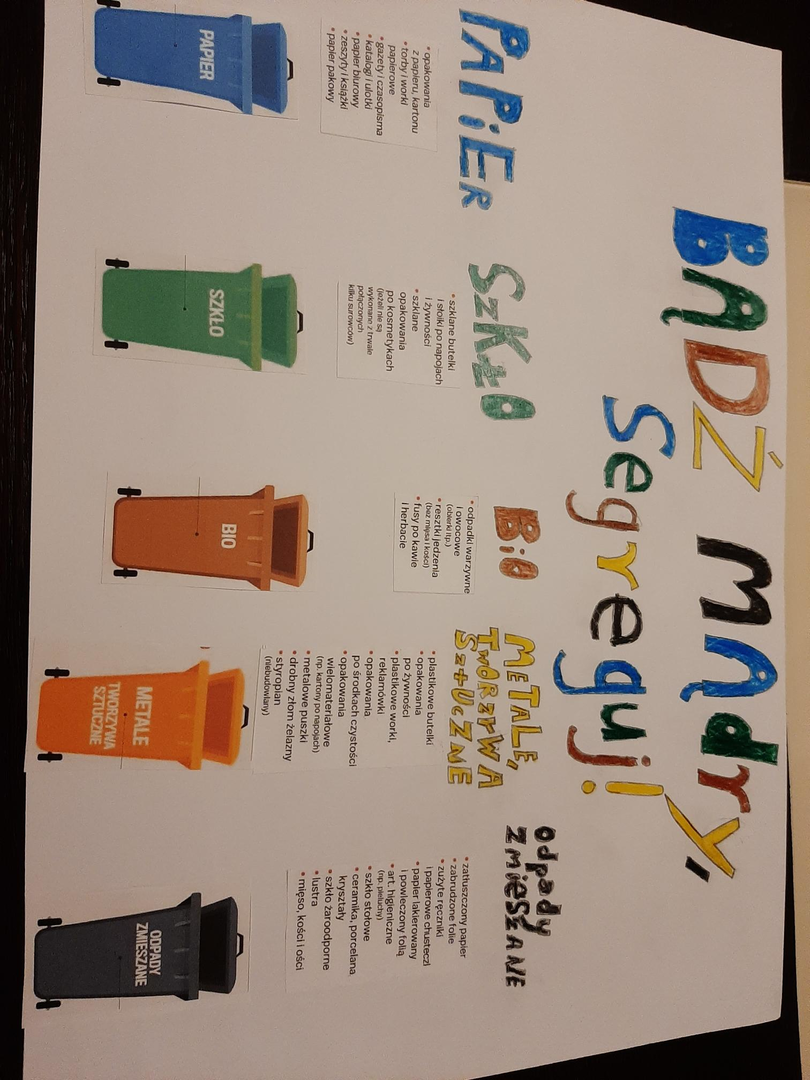 BĄDŹ MĄdry,
Segreguj!
PAPiER
• opakowania
z papieru, kartonu
• torby i worki
papierowe
• gazety i czasopisma
• katalogi i ulotki
• papier biurowy
• zeszyty i książki
• papier pakowy
PAPIER
SzKŁO
• szklane butelki
i słoiki po napojach
i żywności
• szklane
opakowania
po kosmetykach
(jeżeli nie są
wykonane z trwale
połączonych
kilku surowców)
SZKŁO
BiO
• odpadki warzywne
i owocowe
(obierki itp.)
• resztki jedzenia
(bez mięsa i kości)
• fusy po kawie
i herbacie
BIO
METALE,
TwORZYWA
SztUcZNE
• plastikowe butelki
• opakowania
po żywności
• plastikowe worki,
reklamówki
• opakowania
po środkach czystości
• opakowania
wielomateriałowe
(np. kartony po napojach)
• metalowe puszki
• drobny złom żelazny
• styropian
(niebudowlany)
METALE
TWORZYWA
SZTUCZNE
Odpady
ZmiESZANE
• zatłuszczony papier
• zabrudzone folie
• zużyte ręczniki
i papierowe chusteczki
• papier lakierowany
i powleczony folią
• art. higieniczne
(np. pieluchy)
• szkło stołowe
• ceramika, porcelana
kryształy
• szkło żaroodporne
• lustra
• mięso, kości i ości
ODPADY
ZMIESZANE